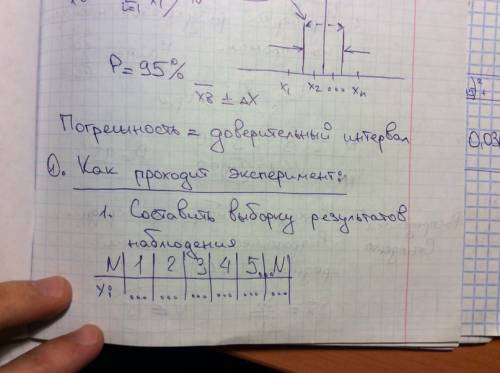 x₁ x₂ ... xₙ
P = 95%
x̄в ± Δx
Погрешность = доверительный интервал
①. Как проходит эксперимент:
1. Составить выборку результатов
наблюдения
N | 1 | 2 | 3 | 4 | 5 ... N |
xi | ... | ... | ... | ... | ... | ... |